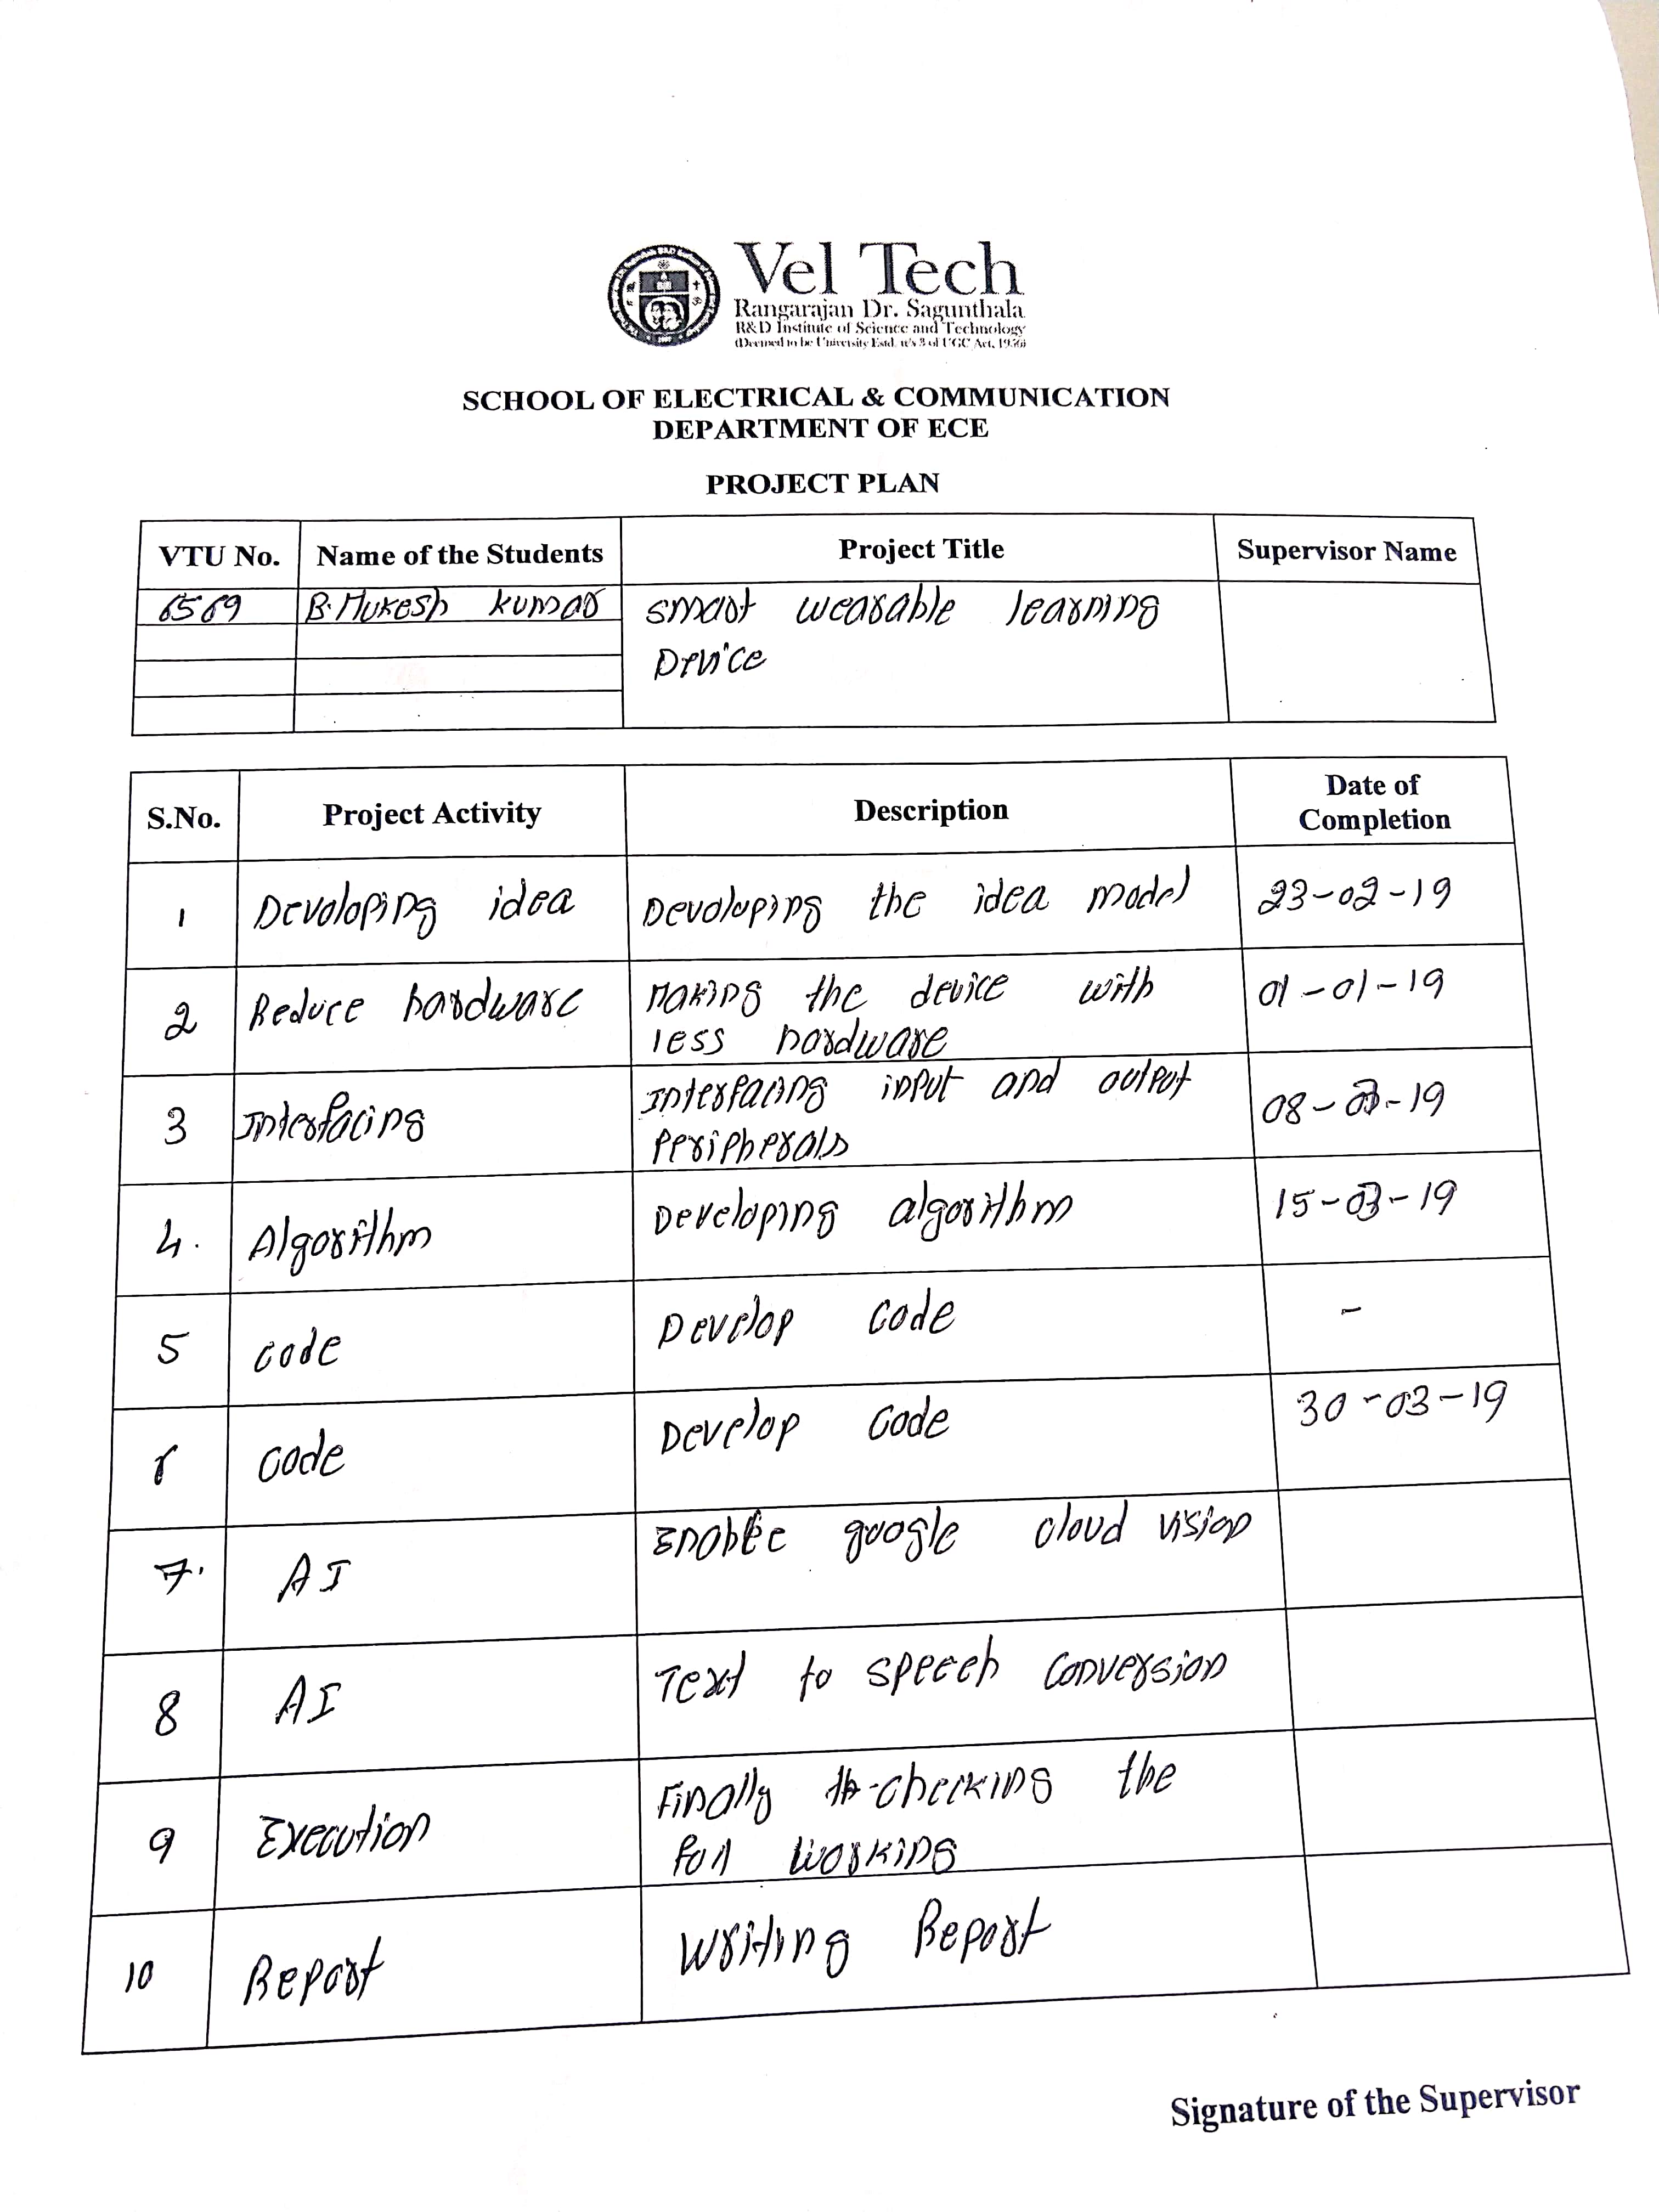 Vel Tech
Rangarajan Dr. Sagunthala
R&D Institute of Science and Technology
(Deemed to be University Estd. u/s 3 of UGC Act, 1956)
SCHOOL OF ELECTRICAL & COMMUNICATION
DEPARTMENT OF ECE
PROJECT PLAN
VTU No. Name of the Students Project Title Supervisor Name
6569 B.Mukesh kumar smart wearable learning
Device
S.No. Project Activity Description Date of
Completion
1 Devoloping idea Devoloping the idea model 23-02-19
2 Reduce hardware Making the device with 01-01-19
less hardware
3 Interfacing Interfacing input and output 08-03-19
Peripherals
4. Algorithm Developing algorithm 15-03-19
5 code Develop code -
6 code Develop code 30-03-19
7. AI Enable google cloud vision
8 AI Text to speech conversion
9 Execution Finally checking the
for working
10 Report Writing Report
Signature of the Supervisor